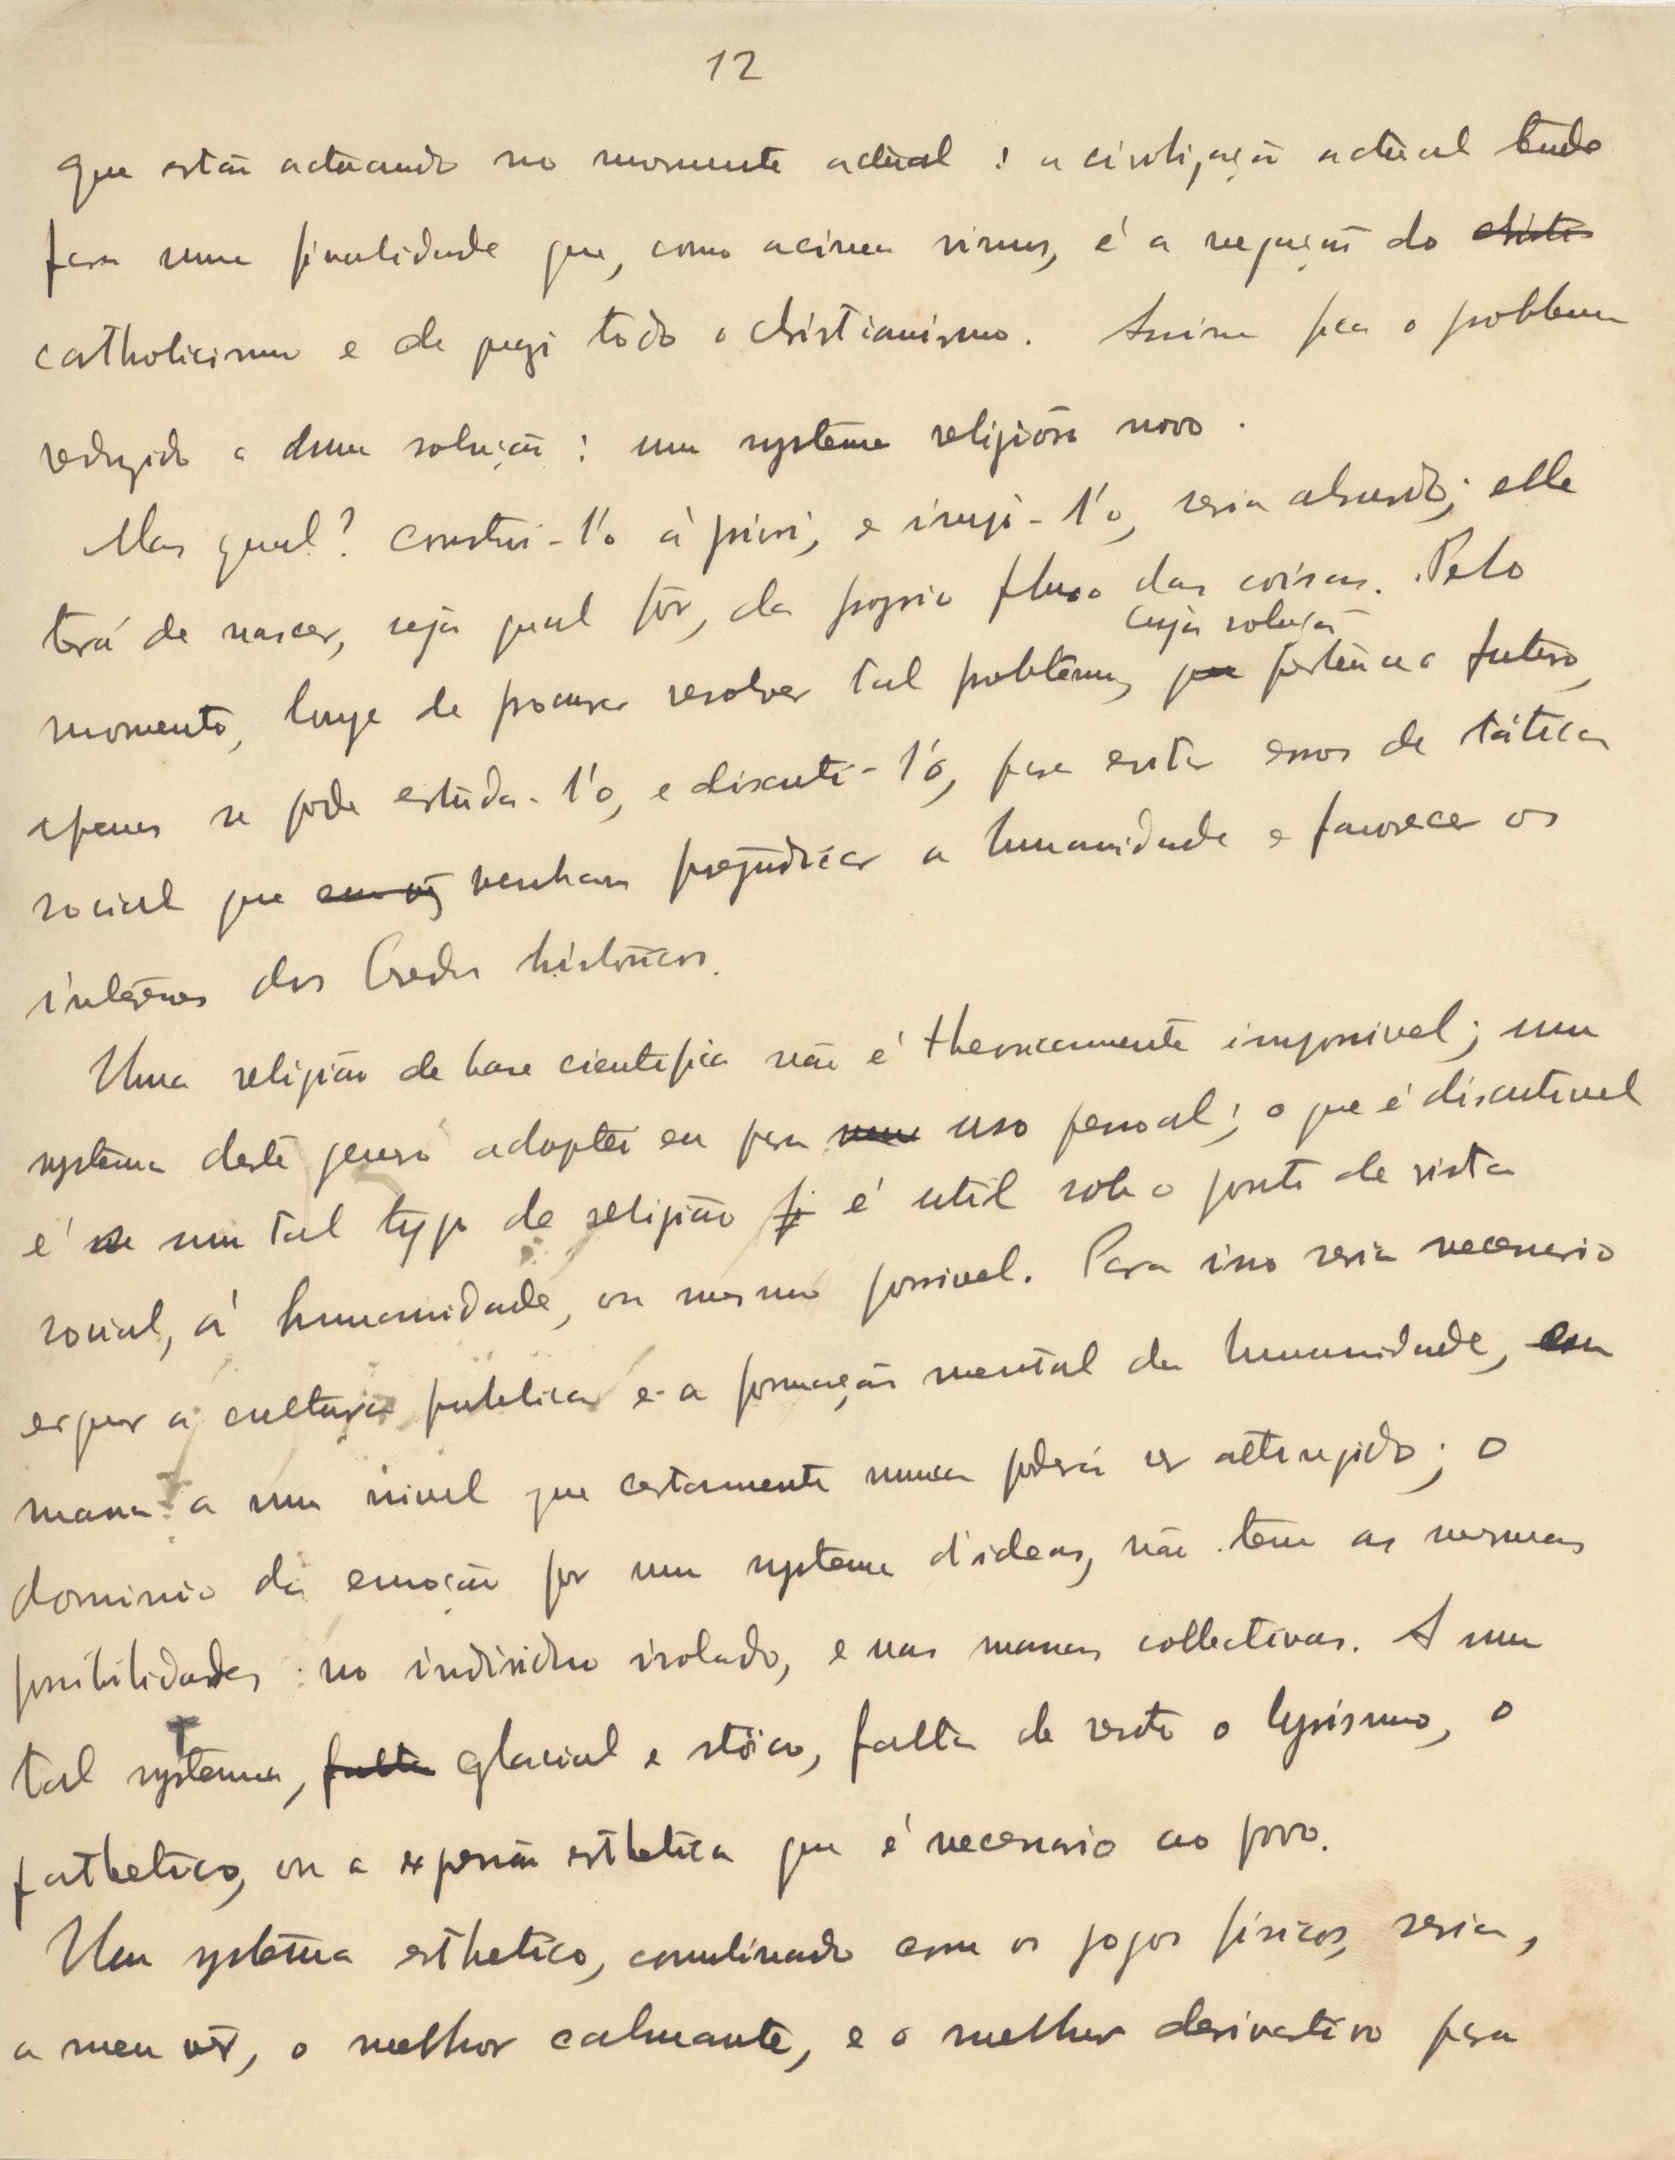 12
que estão actuando no momento actual : a civilização actual tende
para uma finalidade que, como acima vimos, é a negação do christi
catholicismo e de todo o christianismo. Assim fica o problema
reduzido a duma solução : um systema religioso novo.
Mas qual? construi-l'o à priori, e impô-l'o, seria absurdo; elle
terá de nascer, seja qual fôr, do proprio fluxo das coisas. Pelo
cuja solução
momento, longe de procurar resolver tal problema, que pertence ao futuro,
apenas se pode estuda-l'o, e discuti-l'o, para evitar erros de tática
social que venham prejudicar a humanidade e favorecer os
interesses dos Credos históricos.
Uma religião de base cientifica não é theoricamente impossivel; um
systema deste genero adoptei eu para meu uso pessoal; o que é discutivel
é se um tal typo de religião é util sob o ponto de vista
social, á humanidade, ou mesmo possivel. Para isso seria necessario
erguer a cultura publica e a formação mental da humanidade, em
massa a um nivel que certamente nunca poderá ser attingido; o
dominio da emoção por um systema d'ideas, não tem as mesmas
possibilidades : no individuo isolado, e nas massas collectivas. A um
tal systema, falta glacial e stóico, falta de resto o lyrismo, o
pathetico, ou a expressão esthetica que é necessario ao povo.
Um systema esthetico, combinado com os jogos físicos, seria,
a meu vêr, o melhor calmante, e o melhor derivativo para